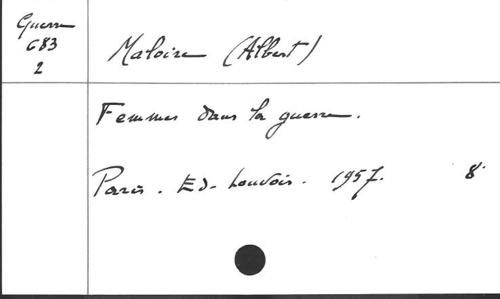 Guerre
683
2
Maloire (Albert)
Femmes dans la guerre.
Paris. Ed. Louvois. 1957. 8°